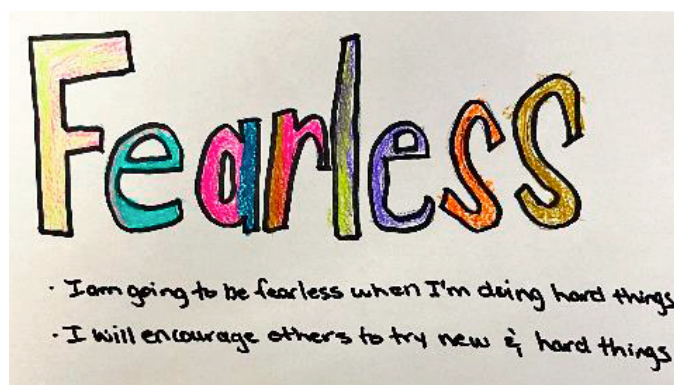 Fearless
· I am going to be fearless when I'm doing hard things
· I will encourage others to try new & hard things